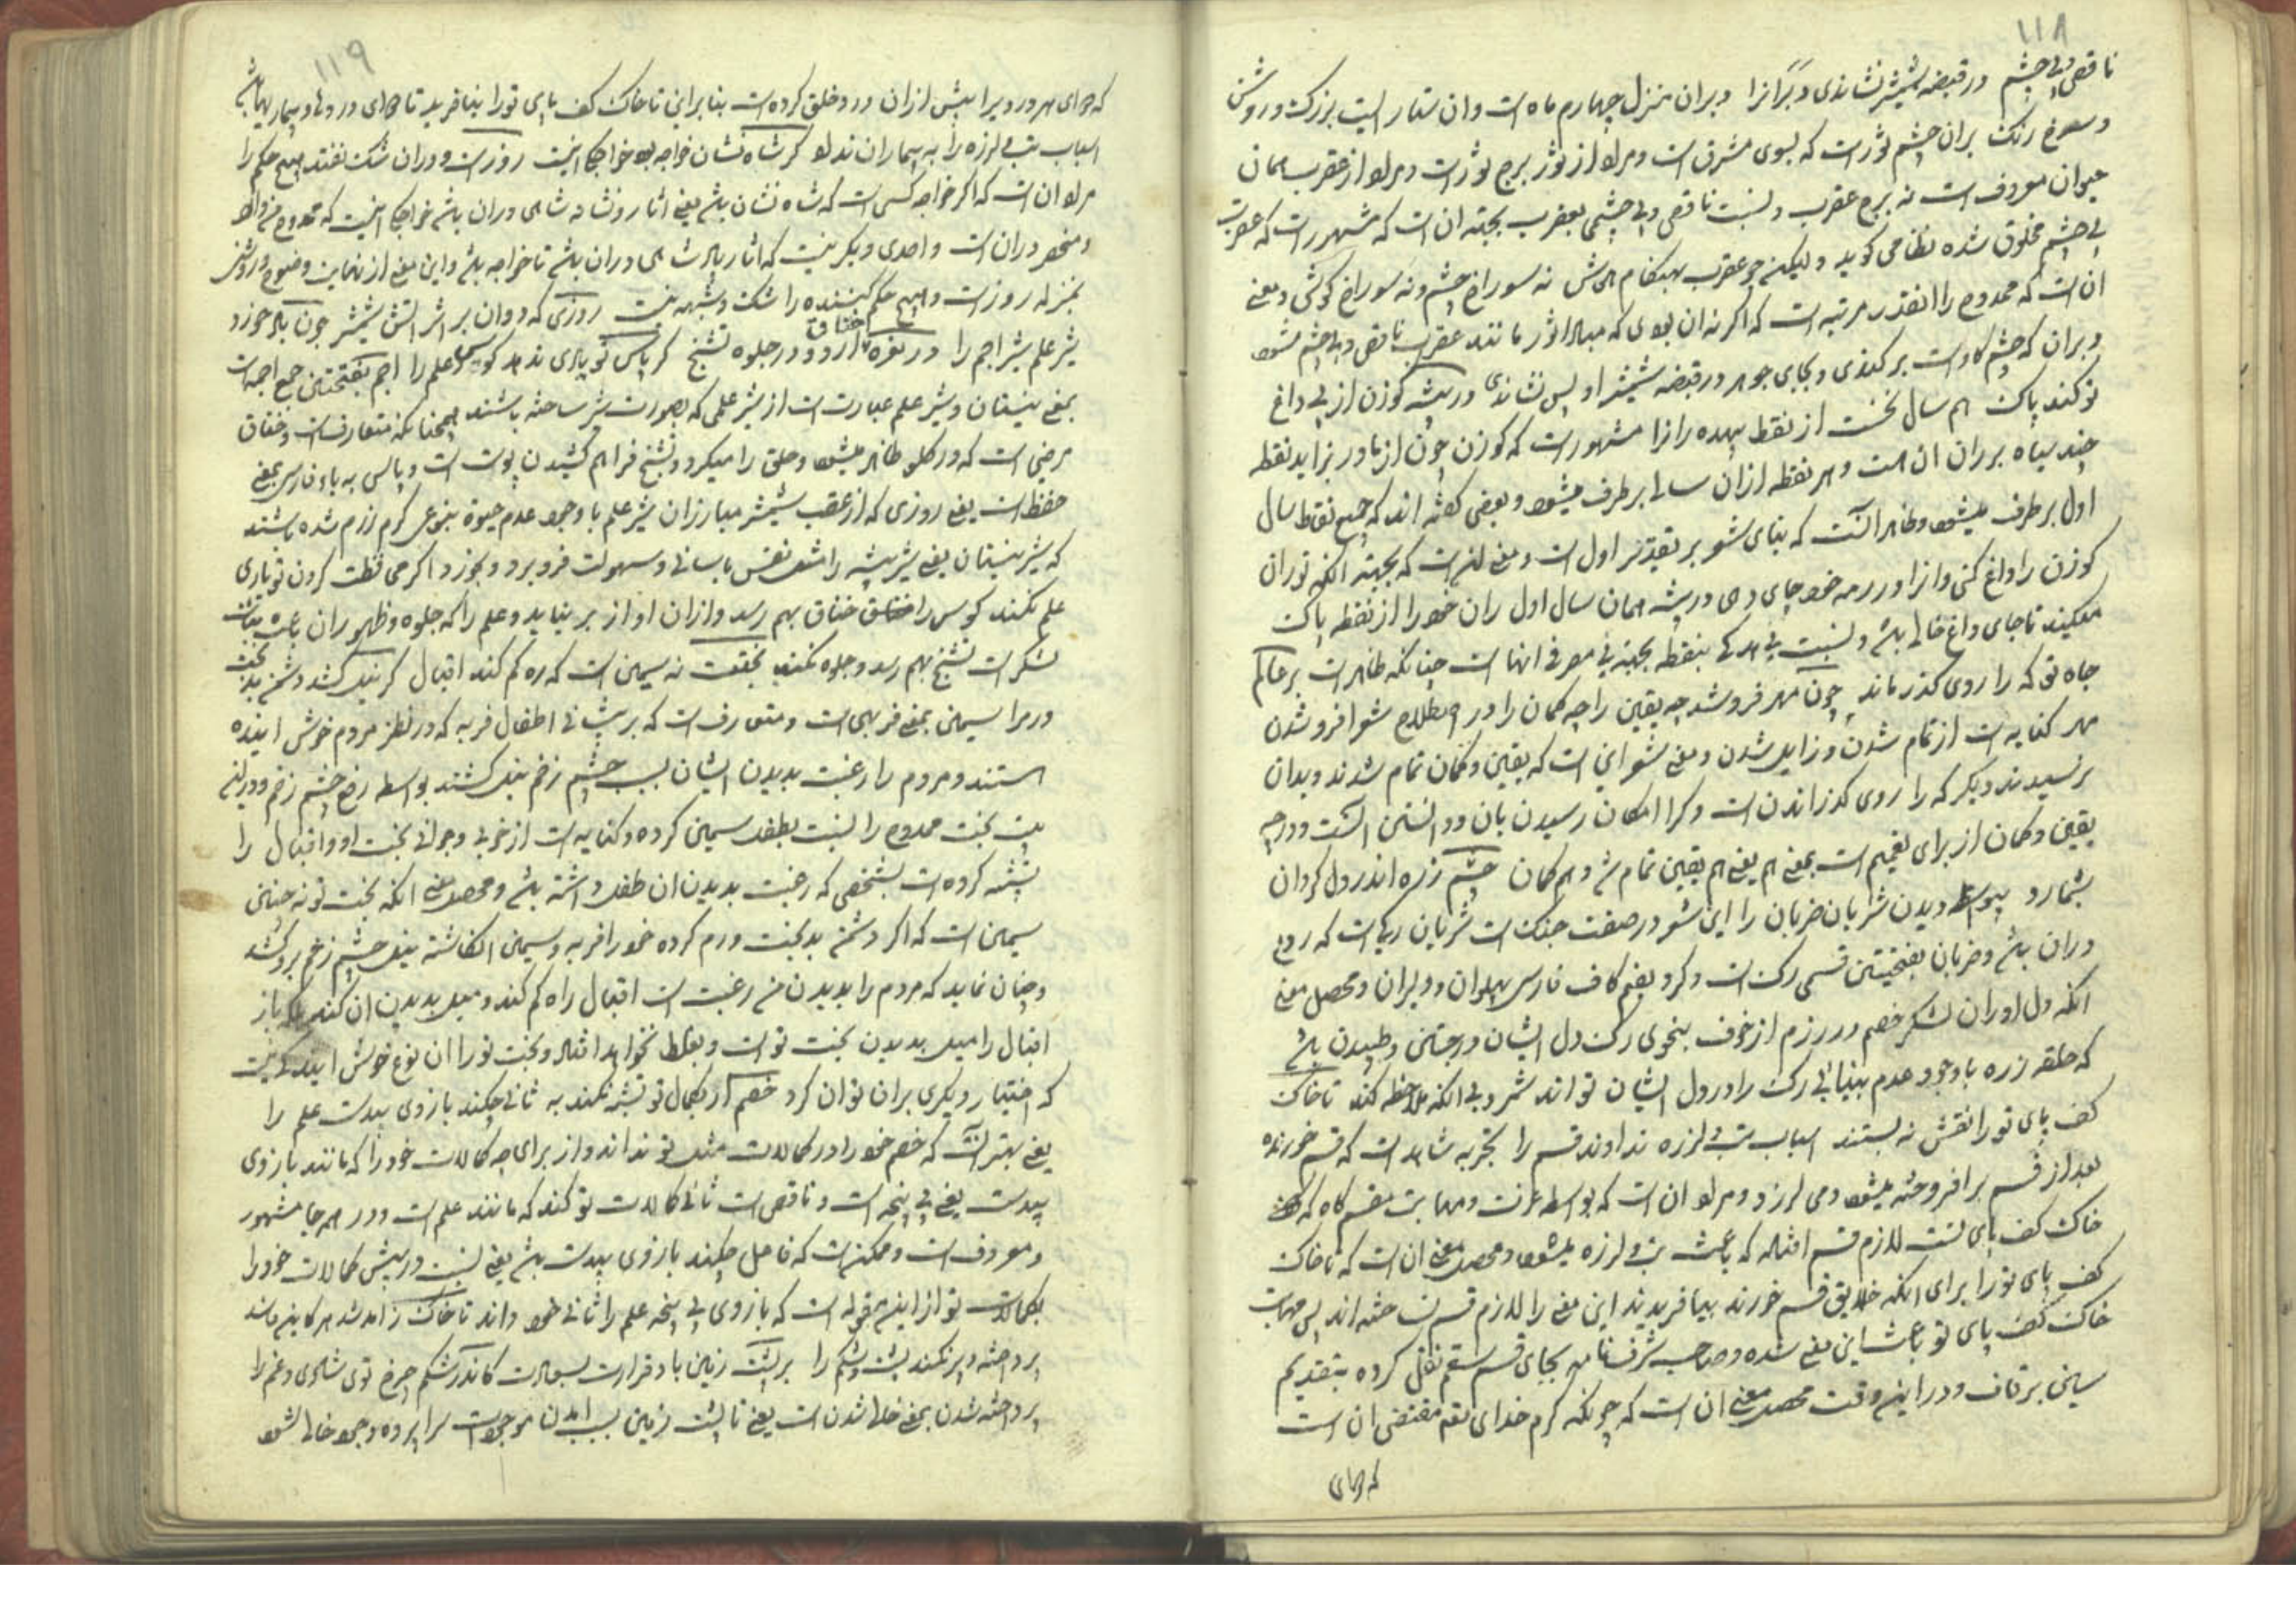 ۱۱۸
ناقص و بی چشم در قبضه شمشیر نشاندی دبران را دبران منزل چهارم ماه است و ان ستاره ایست بزرک و روشن
و سرخ رنک بران چشم ثور است که بسوی مشرق است و مراد از ثور برج ثور است و مراد از عقرب همان
حیوان معروف است نه برج عقرب و نسبت ناقص و بی چشمی بعقرب بجهة ان است که مشهور است که عقرب
بی چشم مخلوق شده نظامی کوید ولیکن چو عقرب بهنکام هش نه سوراخ چشم و نه سوراخ کوش و معنی
ان است که ممدوح را انقدر مرتبه است که اکر نه ان بودی که مبادا ثور مانند عقرب ناقص و بی چشم شود
دبران که چشم کاو است برکندی و بجای جوهر در قبضه شمشیر او بس نشاندی در بیشه کوزن از پی داغ
تو کند پاک هم سال نخست از نقط بیهده ران را مشهور است که کوزن چون از مادر بزاید نقطه
چند سیاه بر ران ان هست و هر نقطه ازان سالی بر طرف میشود و بعضی کفته اند که جمیع نقاط سال
اول بر طرف میشود و ظاهر انست که بنای شعر بر تقدیر اول است و معنی این است که بجهة انکه تو ران
کوزن را داغ کنی و انرا در رمه خود جای دهی در بیشه همان سال اول ران خود را از نقطه پاک
میکند تا جای داغ خالی باشد و نسبت بیهدکی بنقطه بجهة بی مصرفی انها است چنانکه ظاهر است بر عالم
جاه تو که را روی کذر ماند چون مهر فرو شد چه یقین را چه کمان را در اصطلاح شعرا فرو شدن
مهر کنایه است از تمام شدن و زایل شدن و معنی شعر این است که یقین و کمان تمام شدند و بدان
نرسیدند دیکر که را روی کذراندن است و کرا امکان رسیدن بان و دانستن انست و در چه
یقین و کمان از برای تعمیم است بمعنی هم یعنی هم یقین تمام شد و هم کمان چشم زره اندر دل کردان
بشمارد بیواسطه دیدن شریان ضربان را این شعر در صفت جنک است شریان رکی است که روح
دران باشد و ضربان بفتحتین قسمی رک است و کرد بضم کاف فارسی پهلوان و دلیران و محصل معنی
انکه دلاوران لشکر خصم در رزم از خوف بنحوی رک دل ایشان در جستن و طپیدن باشد
که حلقه زره با وجود عدم بینائی رک را در دل ایشان تواند شمرد بی انکه ملاحظه کند تا خاک
کف پای تو را نقش نه بستند اسباب تب و لرزه ندادند قسم را تجربه شاهد است که قسم خورنده
بعد از قسم بر افروخته میشود و می لرزد و مراد ان است که بواسطه عزت و مهابت مقسم کاه که
خاک کف پای تست لازم قسم افتاده که باعث تب و لرزه میشود و محصل معنی ان است که تا خاک
کف پای تو را برای انکه خلایق قسم خورند بیافریدند این معنی را لازم قسم نساخته اند پس مهابت
خاک کف پای تو باعث این معنی شده و صاحب شرفنامه بجای قسم سقم نقل کرده بتقدیم
سین بر قاف و در این وقت محصل معنی ان است که چونکه کرم خدای تع مقتضی ان است
که دوای
۱۱۹
که دوای هر درد را پیش ازان درد خلق کرده است بنابراین تا خاک کف پای تو را نیافرید تا دوای دردها و بیماریها باشد
اسباب تب و لرزه را به بیماران نداد کر شاه نشان خواجه بود خواجکی اینست روزیست و دران شک نفتد هیچ حکم را
مراد ان است که اکر خواجه کسی است که شاه نشان باشد یعنی اثار و نشانه شاهی دران باشد خواجکی اینست که ممدوح من دارد
و منحصر دران است و احدی دیکر نیست که اثار پادشاهی دران باشد تا خواجه باشد و این معنی از نهایت وضوح و روشنی
بمنزله روز است و هیچ حکم کننده را شک و شبهه نیست روزی که دوان بر اثر اتش شمشیر چون باد خورد
شیر علم شیر اجم را در نعره خناق ارد و در جلوه تشنج کر پاس تو یاری ندهد کوس و علم را اجم بفتحتین جمع اجمه است
بمعنی نیستان و شیر علم عبارت است از شیر علمی که بصورت شیر ساخته باشند همچنانکه متعارفست و خناق
مرضی است که در کلو ظاهر میشود و حلق را میکیرد و تشنج فراهم کشیدن پوست است و پاس به باء فارسی بمعنی
حفظ است یعنی روزی که از عقب شمشیر مبارزان شیر علم با وجود عدم حیوة بنوعی کرم رزم شده باشند
که شیر نیستان یعنی شیر بیشه را مثل نفس باسانی و سهولت فرو برد و بخورد اکر می نطق کردن تو یاری
علم نکند کوس را خناق بهم رسد و ازان اواز بر نیاید و علم را که جلوه و ظهور ان باعث ثبات
لشکر است تشنج بهم رسد و جلوه نکند بختت نه سیمین است که ره کم کند اقبال کر نیل کشد دشمن بد بخت
ورم را سیمین بمعنی فربهی است و متعارف است که بر پیشانی اطفال فربه که در نظر مردم خوش اینده
هستند و مردم را رغبت بدیدن ایشان بسبب چشم زخم نیل کشند بواسطه رفع چشم زخم و در این
بیت بخت ممدوح را نسبت بطفل سمین کرده و کنایه است از خوبی و جوانی بخت او و اقبال را
تشبیه کرده است بشخصی که رغبت بدیدن ان طفل داشته باشد و محصل معنی انکه بخت تو نه چنین
سیمین است که اکر دشمن بدبخت ورم کرده خود را فربه و سیمین انکاشته نیل چشم زخم برو کشد
و چنان نماید که مردم را بدیدن من رغبت است اقبال راه کم کند و میل بدیدن ان کند بلکه باز
اقبال را میل بدیدن بخت تو است و بغلط نخواهد افتاد و بخت تو را ان نوع خوش ایندکی نیست
که اختیار دیکری بران توان کرد خصم ار بکمال تو تشبه نکند به ثانی چکند بازوی بیدست علم را
یعنی بهتر انست که خصم خود را در کمالات مثل تو نداند و از برای چه کمالات خود را که مانند بازوی
بیدست یعنی بی پنجه است و ناقص است ثانی کمالات تو کند که مانند علم است و در همه جا مشهور
و معروف است و ممکن است که فاعل چکند بازوی بیدست باشد یعنی نسبت در پیش کمالات خود را
بکمالات تو از این مقوله است که بازوی بی پنجه علم را ثانی خود داند تا خاک ز امدشد هر کاین و فاسد
پرداخته و پر نکند پشت و شکم را بر پشت زمین باد قرارت بسعادت کاندر شکم چرخ توی شادی و غم را
پرداخته شدن بمعنی خالی شدن است یعنی تا پشت زمین بسبب امدن موجودات سراپرده وجود خالی نشود